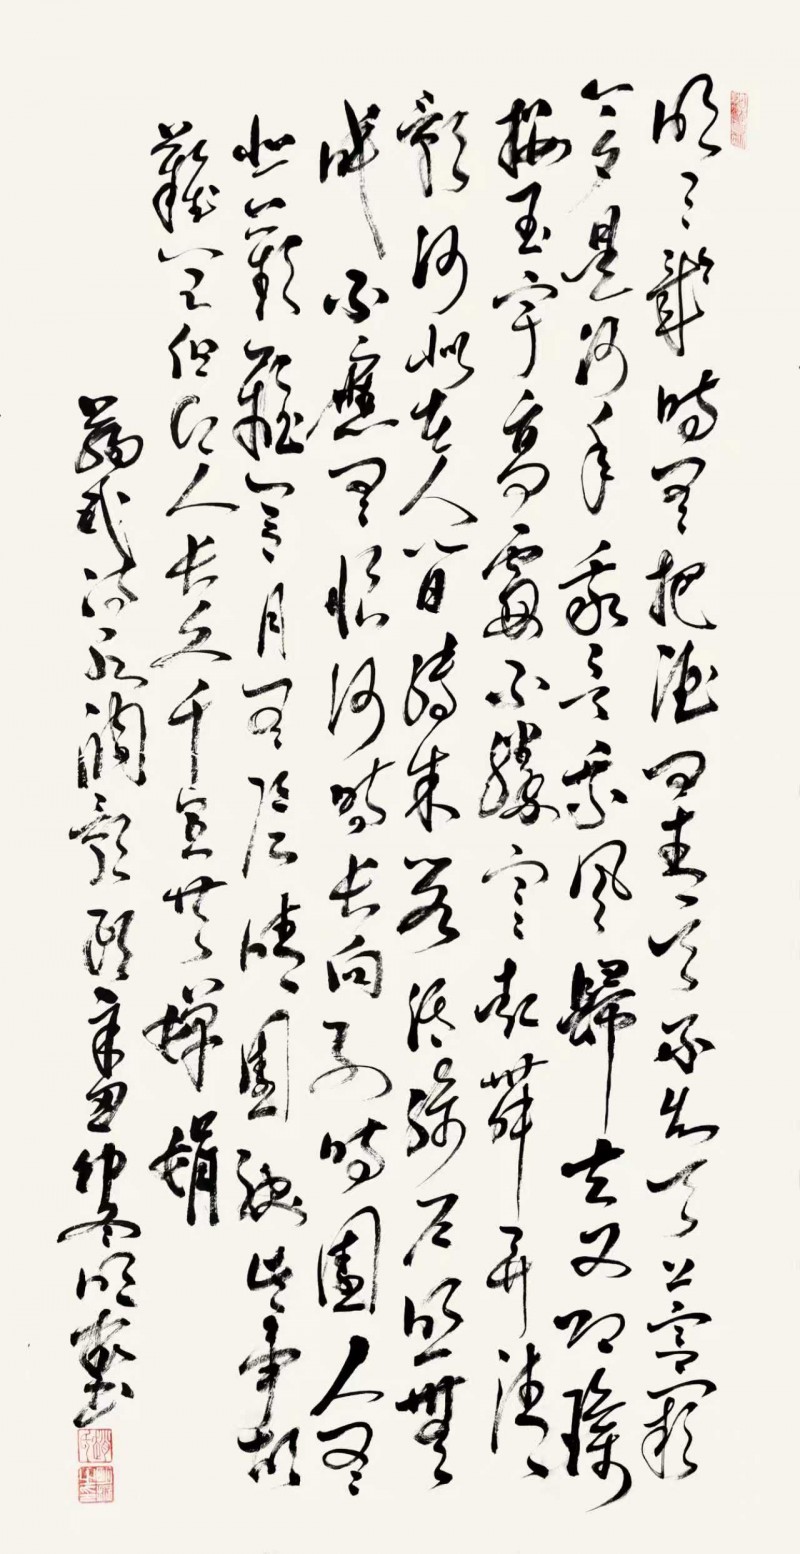 明月幾時有把酒問青天不知天上宮闕
今夕是何年我欲乘風歸去又恐瓊
樓玉宇高處不勝寒起舞弄清
影何似在人間轉朱閣低綺户照無
眠不應有恨何時長向別時圓人有
悲歡離合月有陰晴圓缺此事古
難全但願人長久千里共嬋娟
蘇軾詞水調歌頭辛丑仲冬明